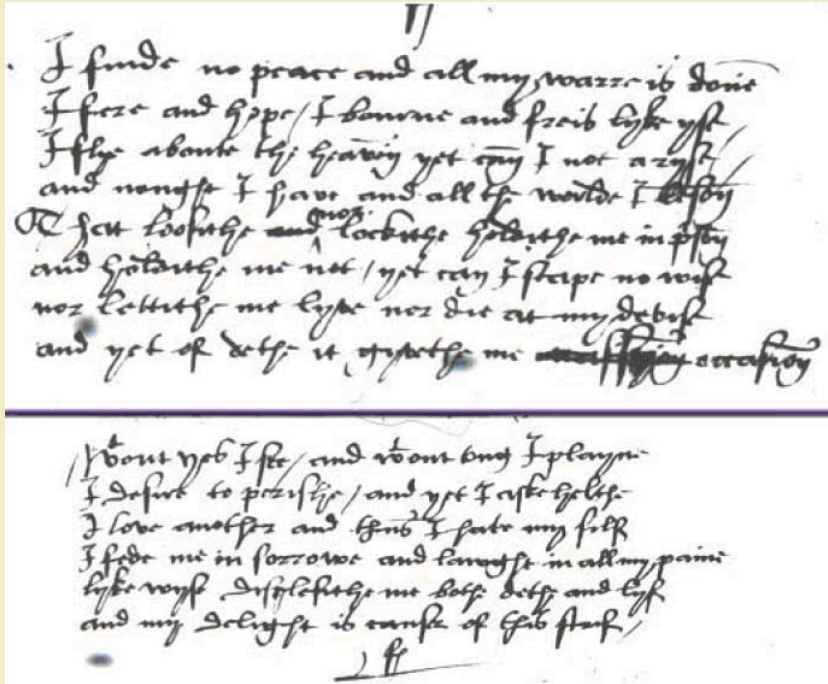 I finde no peace and all my warre is done
I fere and hope / I bourne and freis lyke yse /
I flye aboute the heavin yet can I not aryse /
and nought I have and all the worlde I seson
That lookithe and nor lockithe holdithe me in pson
and holdithe me not / yet can I scape no wise
nor lettithe me lyve nor die at my devise
and yet of dethe it givethe me occasion
/ wᵗout yes I see / and wᵗout tung I playne
I desire to perishe / and yet I aske helthe
I love another and thus I hate my silf
I fede me in sorrowe and lawght in all my paine
lyke wyse displesithe me bothe dethe and lyf
and my delight is causer of this strif /